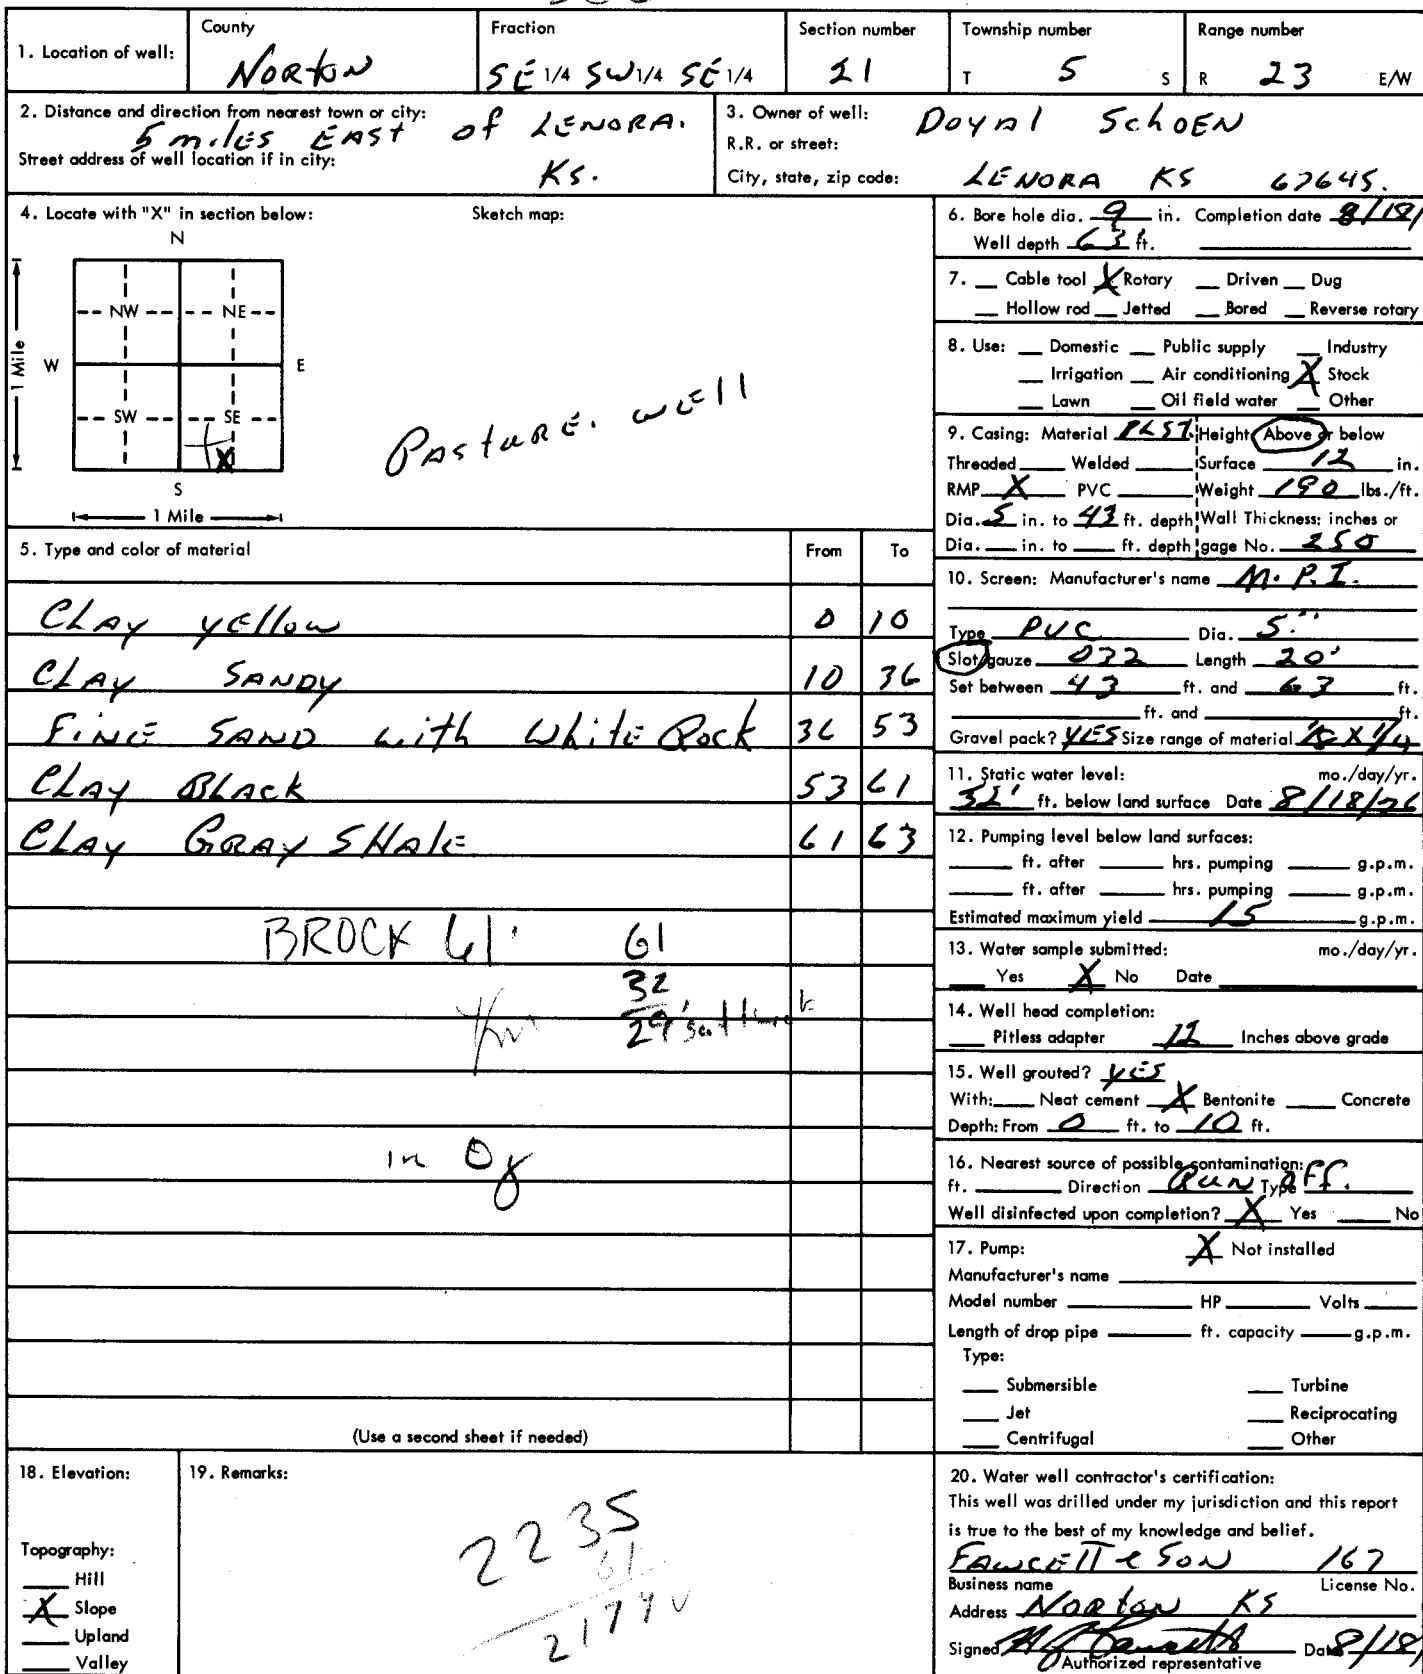 1. Location of well:
County
Norton
Fraction
SE 1/4 SW 1/4 SE 1/4
Section number
21
Township number
T 5 S
Range number
R 23 E/W
2. Distance and direction from nearest town or city:
5 miles EAST of LENORA.
Street address of well location if in city:
Ks.
3. Owner of well: Doyal Schoen
R.R. or street:
City, state, zip code: LENORA KS 67645.
4. Locate with "X" in section below:
Sketch map:
N
NW NE
W E
SW SE
X
S
1 Mile
1 Mile
Pasture. well
5. Type and color of material From To
Clay yellow 0 10
Clay Sandy 10 36
Fine Sand with White Rock 36 53
Clay Black 53 61
Clay Gray Shale 61 63
BROCK 61'
61
32
29'
in
(Use a second sheet if needed)
6. Bore hole dia. 9 in. Completion date 8/18/
Well depth 63' ft.
7. Cable tool X Rotary Driven Dug
Hollow rod Jetted Bored Reverse rotary
8. Use: Domestic Public supply Industry
Irrigation Air conditioning X Stock
Lawn Oil field water Other
9. Casing: Material PLST. Height Above or below
Threaded Welded Surface 12 in.
RMP X PVC Weight 190 lbs./ft.
Dia. 5 in. to 43 ft. depth Wall Thickness: inches or
Dia. in. to ft. depth gage No. 250
10. Screen: Manufacturer's name M.P.I.
Type PVC Dia. 5"
Slot/gauze 032 Length 20'
Set between 43 ft. and 63 ft.
ft. and ft.
Gravel pack? YES Size range of material 1/8 X 1/4
11. Static water level: mo./day/yr.
32' ft. below land surface Date 8/18/76
12. Pumping level below land surfaces:
ft. after hrs. pumping g.p.m.
ft. after hrs. pumping g.p.m.
Estimated maximum yield 15 g.p.m.
13. Water sample submitted: mo./day/yr.
Yes X No Date
14. Well head completion:
Pitless adapter 12 Inches above grade
15. Well grouted? YES
With: Neat cement X Bentonite Concrete
Depth: From 0 ft. to 10 ft.
16. Nearest source of possible contamination:
ft. Direction Run Type off.
Well disinfected upon completion? X Yes No
17. Pump: X Not installed
Manufacturer's name
Model number HP Volts
Length of drop pipe ft. capacity g.p.m.
Type:
Submersible Turbine
Jet Reciprocating
Centrifugal Other
18. Elevation:
Topography:
Hill
X Slope
Upland
Valley
19. Remarks:
2235
61
2174
20. Water well contractor's certification:
This well was drilled under my jurisdiction and this report
is true to the best of my knowledge and belief.
Fawcett & Son 167
Business name License No.
Address Norton KS
Signed Date 8/18/
Authorized representative